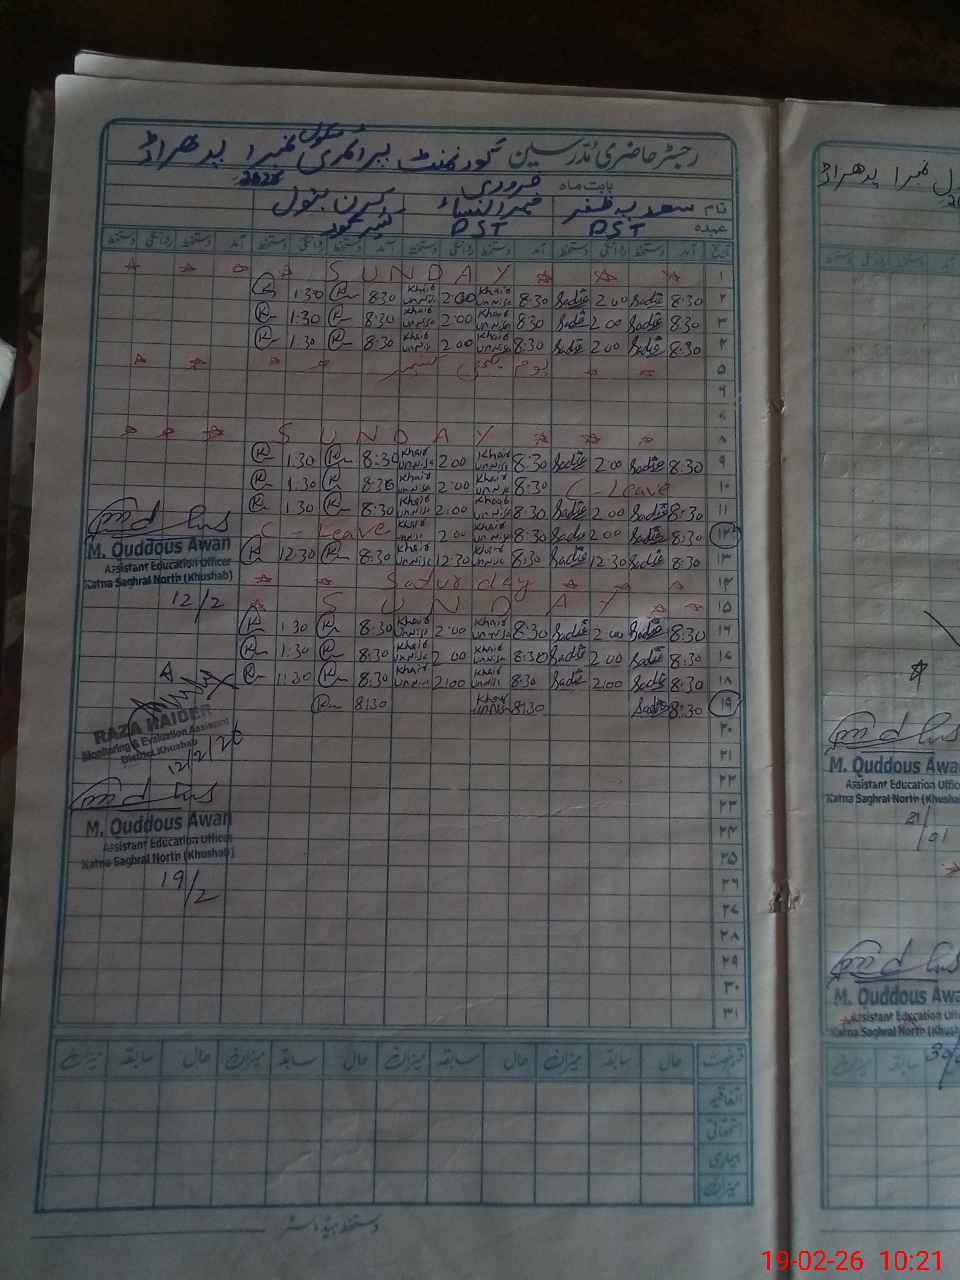 رجسٹر حاضری مدرسین گورنمنٹ پرائمری سکول نمبر 1 پدھراڑ
بابت ماہ فروری
نام سعدیہ ظفر خیر النساء کرن بتول
عہدہ PST PST
تاریخ آمد دستخط روانگی دستخط آمد دستخط روانگی دستخط آمد دستخط روانگی دستخط آمد دستخط روانگی دستخط
۱ SUNDAY
۲ 8:30 Sadia 2:00 Sadia 8:30 Khair unnisa 2:00 Khair unnisa 8:30 1:30
۳ 8:30 Sadia 2:00 Sadia 8:30 Khair unnisa 2:00 Khair unnisa 8:30 1:30
۴ 8:30 Sadia 2:00 Sadia 8:30 Khair unnisa 2:00 Khair unnisa 8:30 1:30
۵ یوم کشمیر
۶
۷
۸ SUNDAY
۹ 8:30 Sadia 2:00 Sadia 8:30 Khair unnisa 2:00 Khair unnisa 8:30 1:30
۱۰ C-Leave 8:30 Khair unnisa 2:00 Khair unnisa 8:30 1:30
۱۱ 8:30 Sadia 2:00 Sadia 8:30 Khair unnisa 2:00 Khair unnisa 8:30 1:30
۱۲ 8:30 Sadia 2:00 Sadia 8:30 Khair unnisa 2:00 Khair unnisa C-Leave
۱۳ 8:30 Sadia 12:30 Sadia 8:30 Khair unnisa 12:30 Khair unnisa 8:30 12:30
۱۴ Saturday
۱۵ SUNDAY
۱۶ 8:30 Sadia 2:00 Sadia 8:30 Khair unnisa 2:00 Khair unnisa 8:30 1:30
۱۷ 8:30 Sadia 2:00 Sadia 8:30 Khair unnisa 2:00 Khair unnisa 8:30 1:30
۱۸ 8:30 Sadia 2:00 Sadia 8:30 Khair unnisa 2:00 Khair unnisa 8:30 1:30
۱۹ 8:30 Sadia 8:30 Khair unnisa 8:30
۲۰
۲۱
۲۲
۲۳
۲۴
۲۵
۲۶
۲۷
۲۸
۲۹
۳۰
۳۱
M. Quddous Awan
Assistant Education Officer
Katha Saghral North (Khushab)
12/2
RAZA HAIDER
Monitoring & Evaluation Assistant
District Khushab
12/2/26
M. Quddous Awan
Assistant Education Officer
Katha Saghral North (Khushab)
19/2
رخصت حال سابقہ میزان حال سابقہ میزان حال سابقہ میزان حال سابقہ میزان
اتفاقیہ
استحقاقی
بیماری
میزان
دستخط ہیڈ ماسٹر
نمبر 1 پدھراڑ
M. Quddous Awa
Assistant Education Offic
Katha Saghral North (Khushab
21/01
M. Quddous Awa
Assistant Education Offi
Katha Saghral North (Khus
سابقہ میزان
19-02-26 10:21